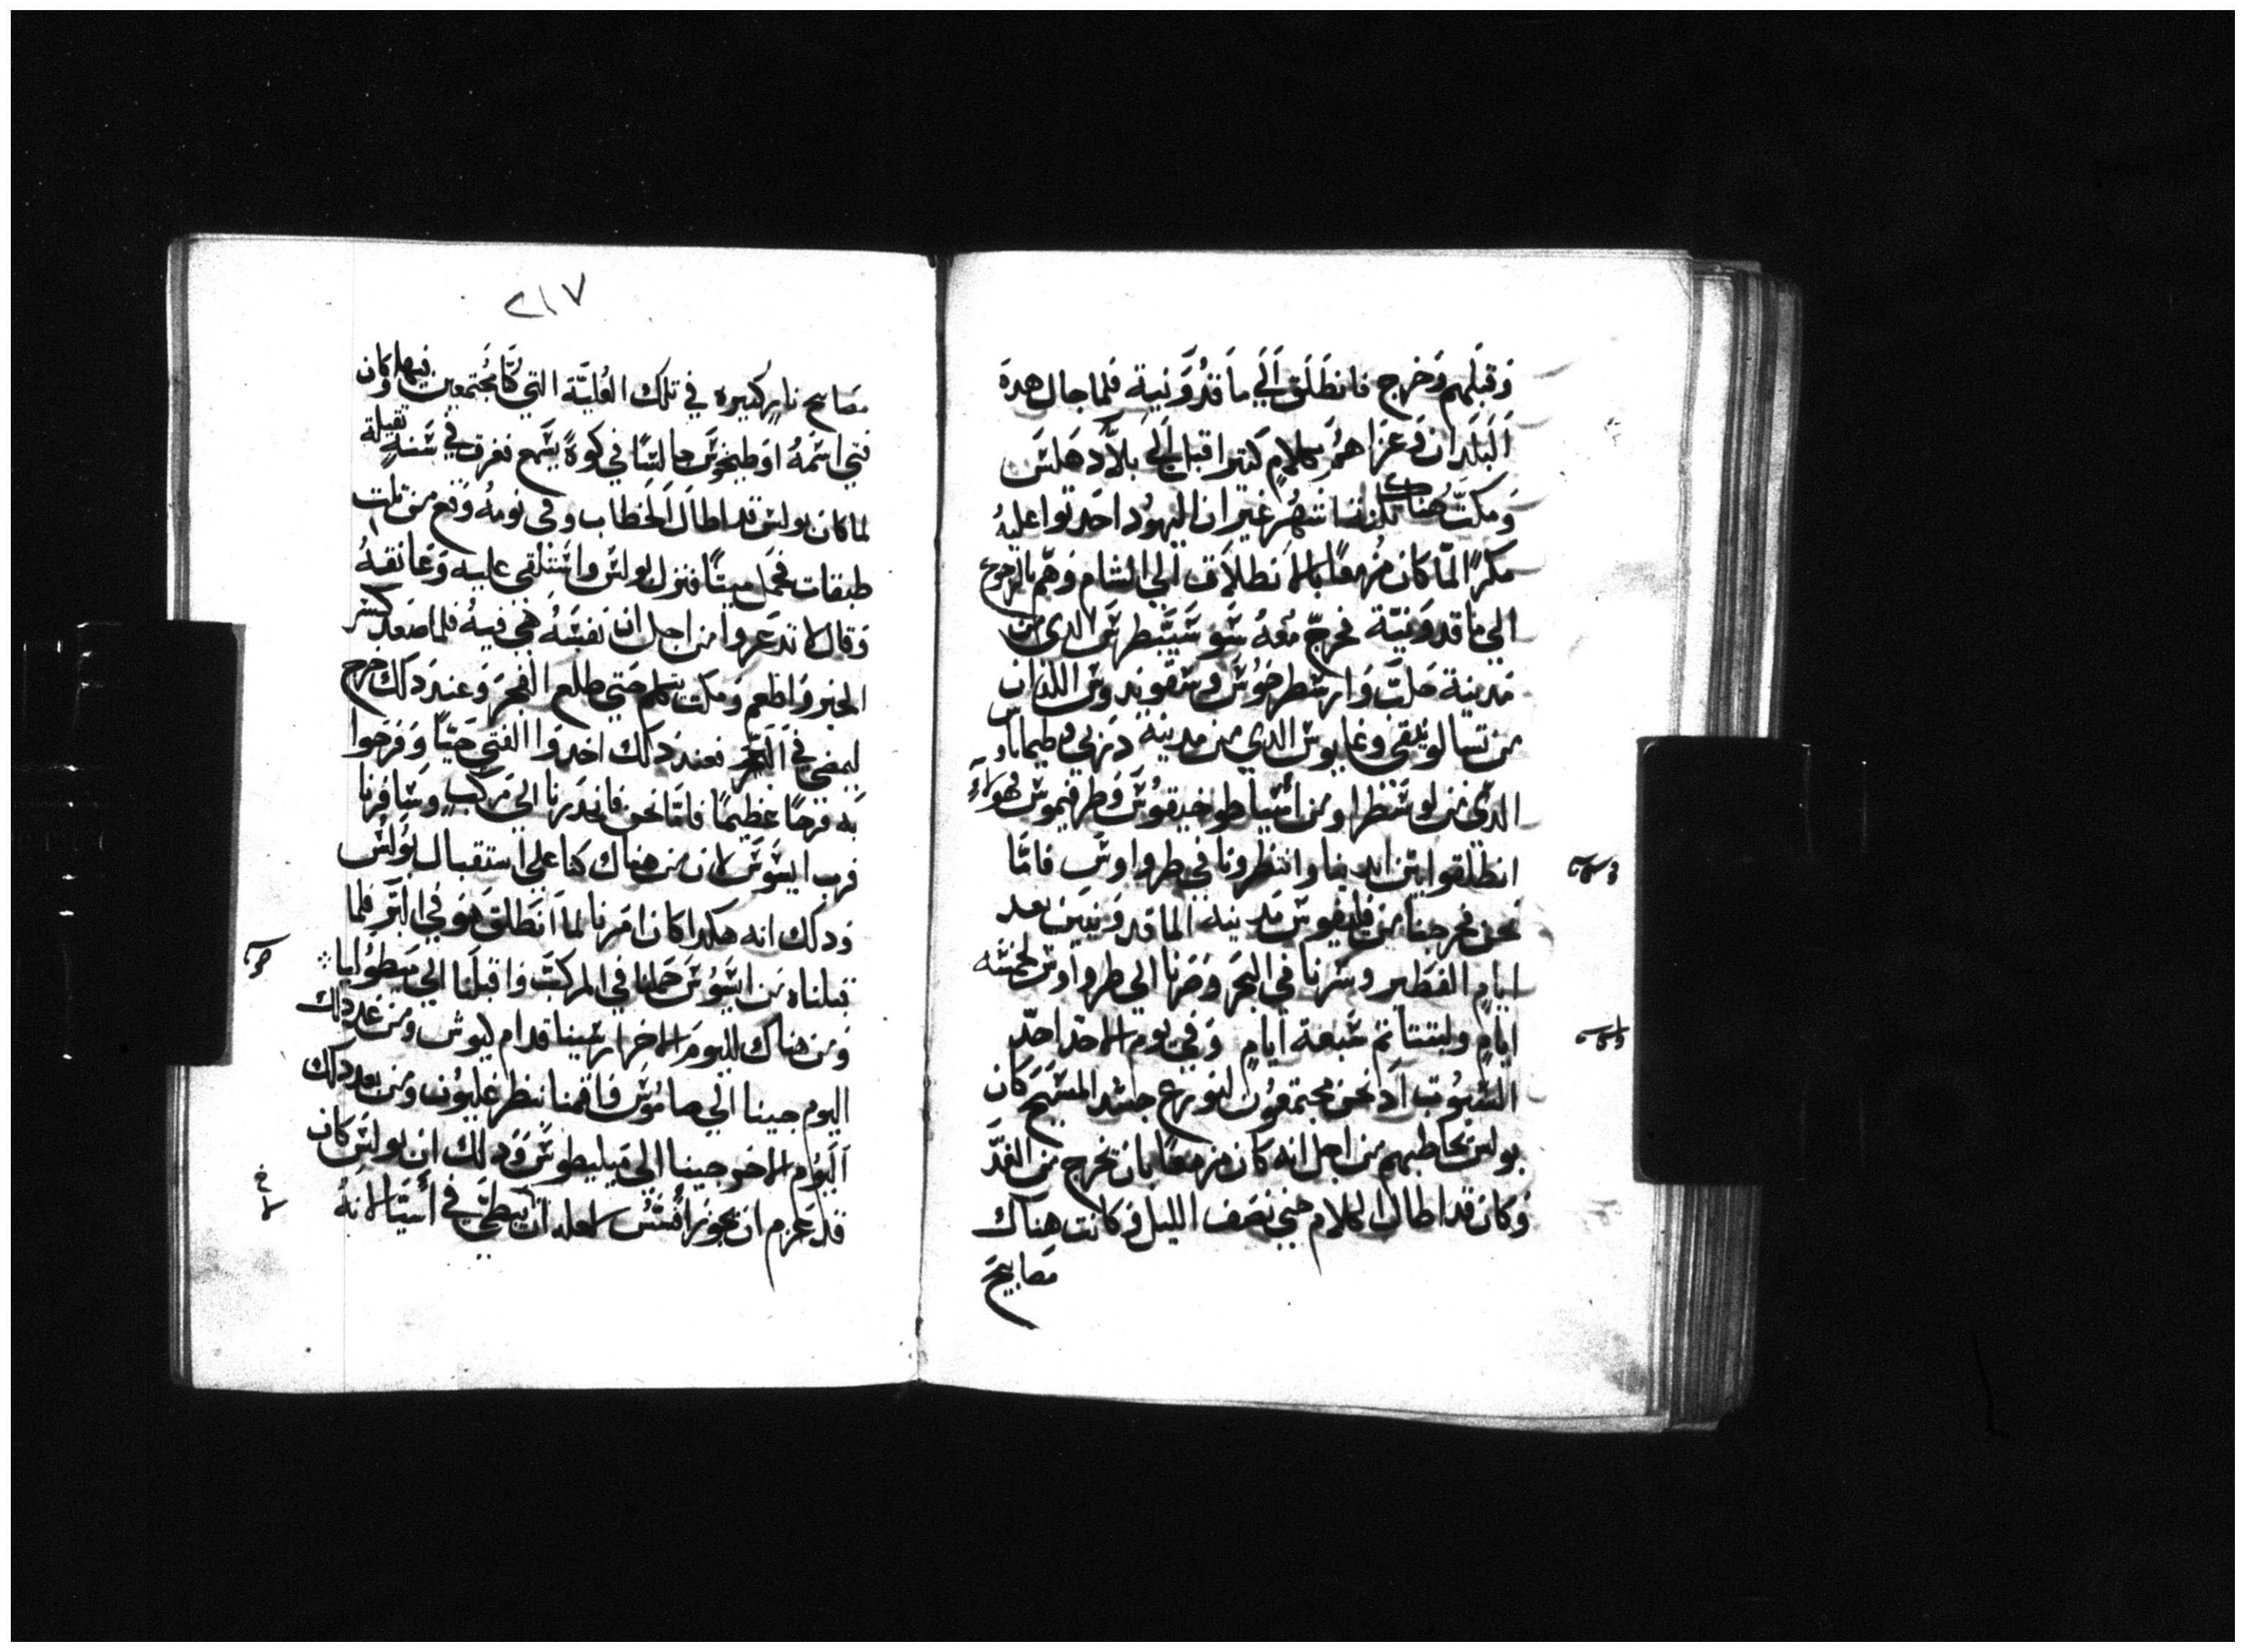 وَقبَلهم وَخرج فانطَلَق اَلَي مَاقدُوَنية فلما جال هدهَ
اَلبَلدان وَعزاهمُ بكلامٍ كتيرا قبل اَلي بلاَد هَلتَس
وَمكتَ هناك تلتة اشهُر غير ان اليهوُد احَدتوا عليهُ
مَكرًا لمّا كان مزمعًا بالانطلاَق الي الشام وَهَم بالرجوع
الي ماقدوَنيّة فخرجّ مَعهُ سَوسَيّبَطرسَ الدي من
مَدينة حَلبَّ وَارسَطرخوُسَ وسَقوندوسَ اللدان
من تسالونيقي وغايوسَ الدي من مدينة دَربي وطيماتاوس
الدّي من لوسَطرا ومن اسَيا طوخيقوُسَ وَطرفيموسَ فهولاءِ
انطلقوا بين ايدينا وانتظرونا في طروا وسَ فامّا
نحن فخرجنا من فليفوسَ مَدينة الماقدوَنيين بعد
ايام الفطير وسَرنا في البَحر وَصَرنا الي طرواوسَ لخمسَة
ايامٍ ولبتنا تم سَبعة ايامٍ وَفي يوم الاحدّ احدّ
السَبوُت اَد نحن مجتمعُون لنوزع جسَد المسَيحَ كان
بولسَ يخاطبهم من اجل انه كان مزمعًا بان يخرج من الغدَ
وَكان قد اطال الكلام حتي نصَف الليل وَ كانت هناك
مصَابيحَ
٢١٧
مصَابيح نارٍ كتيره في تلك العُليّة التي كنّا مُجتمعين فيها وكان
فتي اسَمهُ اوَطيخوسَ جالسَا في كوةً يسَمع فغرق في سَنةٍ تقيلة
لما كان بولسَ قد اطال اَلخطاب وفي نومهُ وَقع من تلت
طبقات فحمل ميتًا فنزل بولسَ واسَتلقي عليه وَعَانقهُ
وَقال لا تدعَروا من اجل ان نفسَهُ هَي فيهُ فلما صَعد كسَر
الخبز وَاطعم وَمكت يتكلم حتي طلع الفجرَ وَعند دلك خرج
ليمضي في اَلبَحر فعند دَلك اخدوَا الفتي حيّاً وَفرَحوا
بَه فرَحًا عظيمًا فامّا نحن فانحدَرنا الي مَركبٍ وسَافرنا
قرب ايسَوسَ لان من هناك كنا علي استقبال بوُلسَ
وَدلك انه هكدا كان امَرنا لما اَنطلق هوَ في البَر فلما
قبلناه من ايسَوُسَ حَملنا في المركبَ وَاقبلنا الي ميطوُلينا
وَمن هناك لليومَ الاخر ارسَينا قدام كيوش ومن غد دلك
اليوم جينا الي صاموُسَ فاقمنا بنطرَغليوُن ومن بعد دلك
اَليَوم الاخر جينا الي ميليطوسَ وَدلك ان بولسَ كان
قد عَزم ان يجوز افَسَسَ لعله ان يبطي في اَسَيَا لانهُ